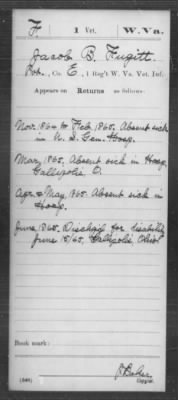 F. 1 Vet. W.Va.
Jacob B. Fugitt
Pvt., Co. E, 1 Reg't W. Va. Vet. Inf.
Appears on Returns as follows:
Nov. 1864 to Feb. 1865. Absent sick
in U. S. Gen. Hosp.
Mar. 1865, Absent sick in Hosp.
Gallipolis, O.
Apr. & May, 1865. Absent sick in
Hosp.
June 1865. Discharg. for disability
June 15/65, Gallipolis, Ohio.
Book mark:
J. Baker
(546) Copyist.